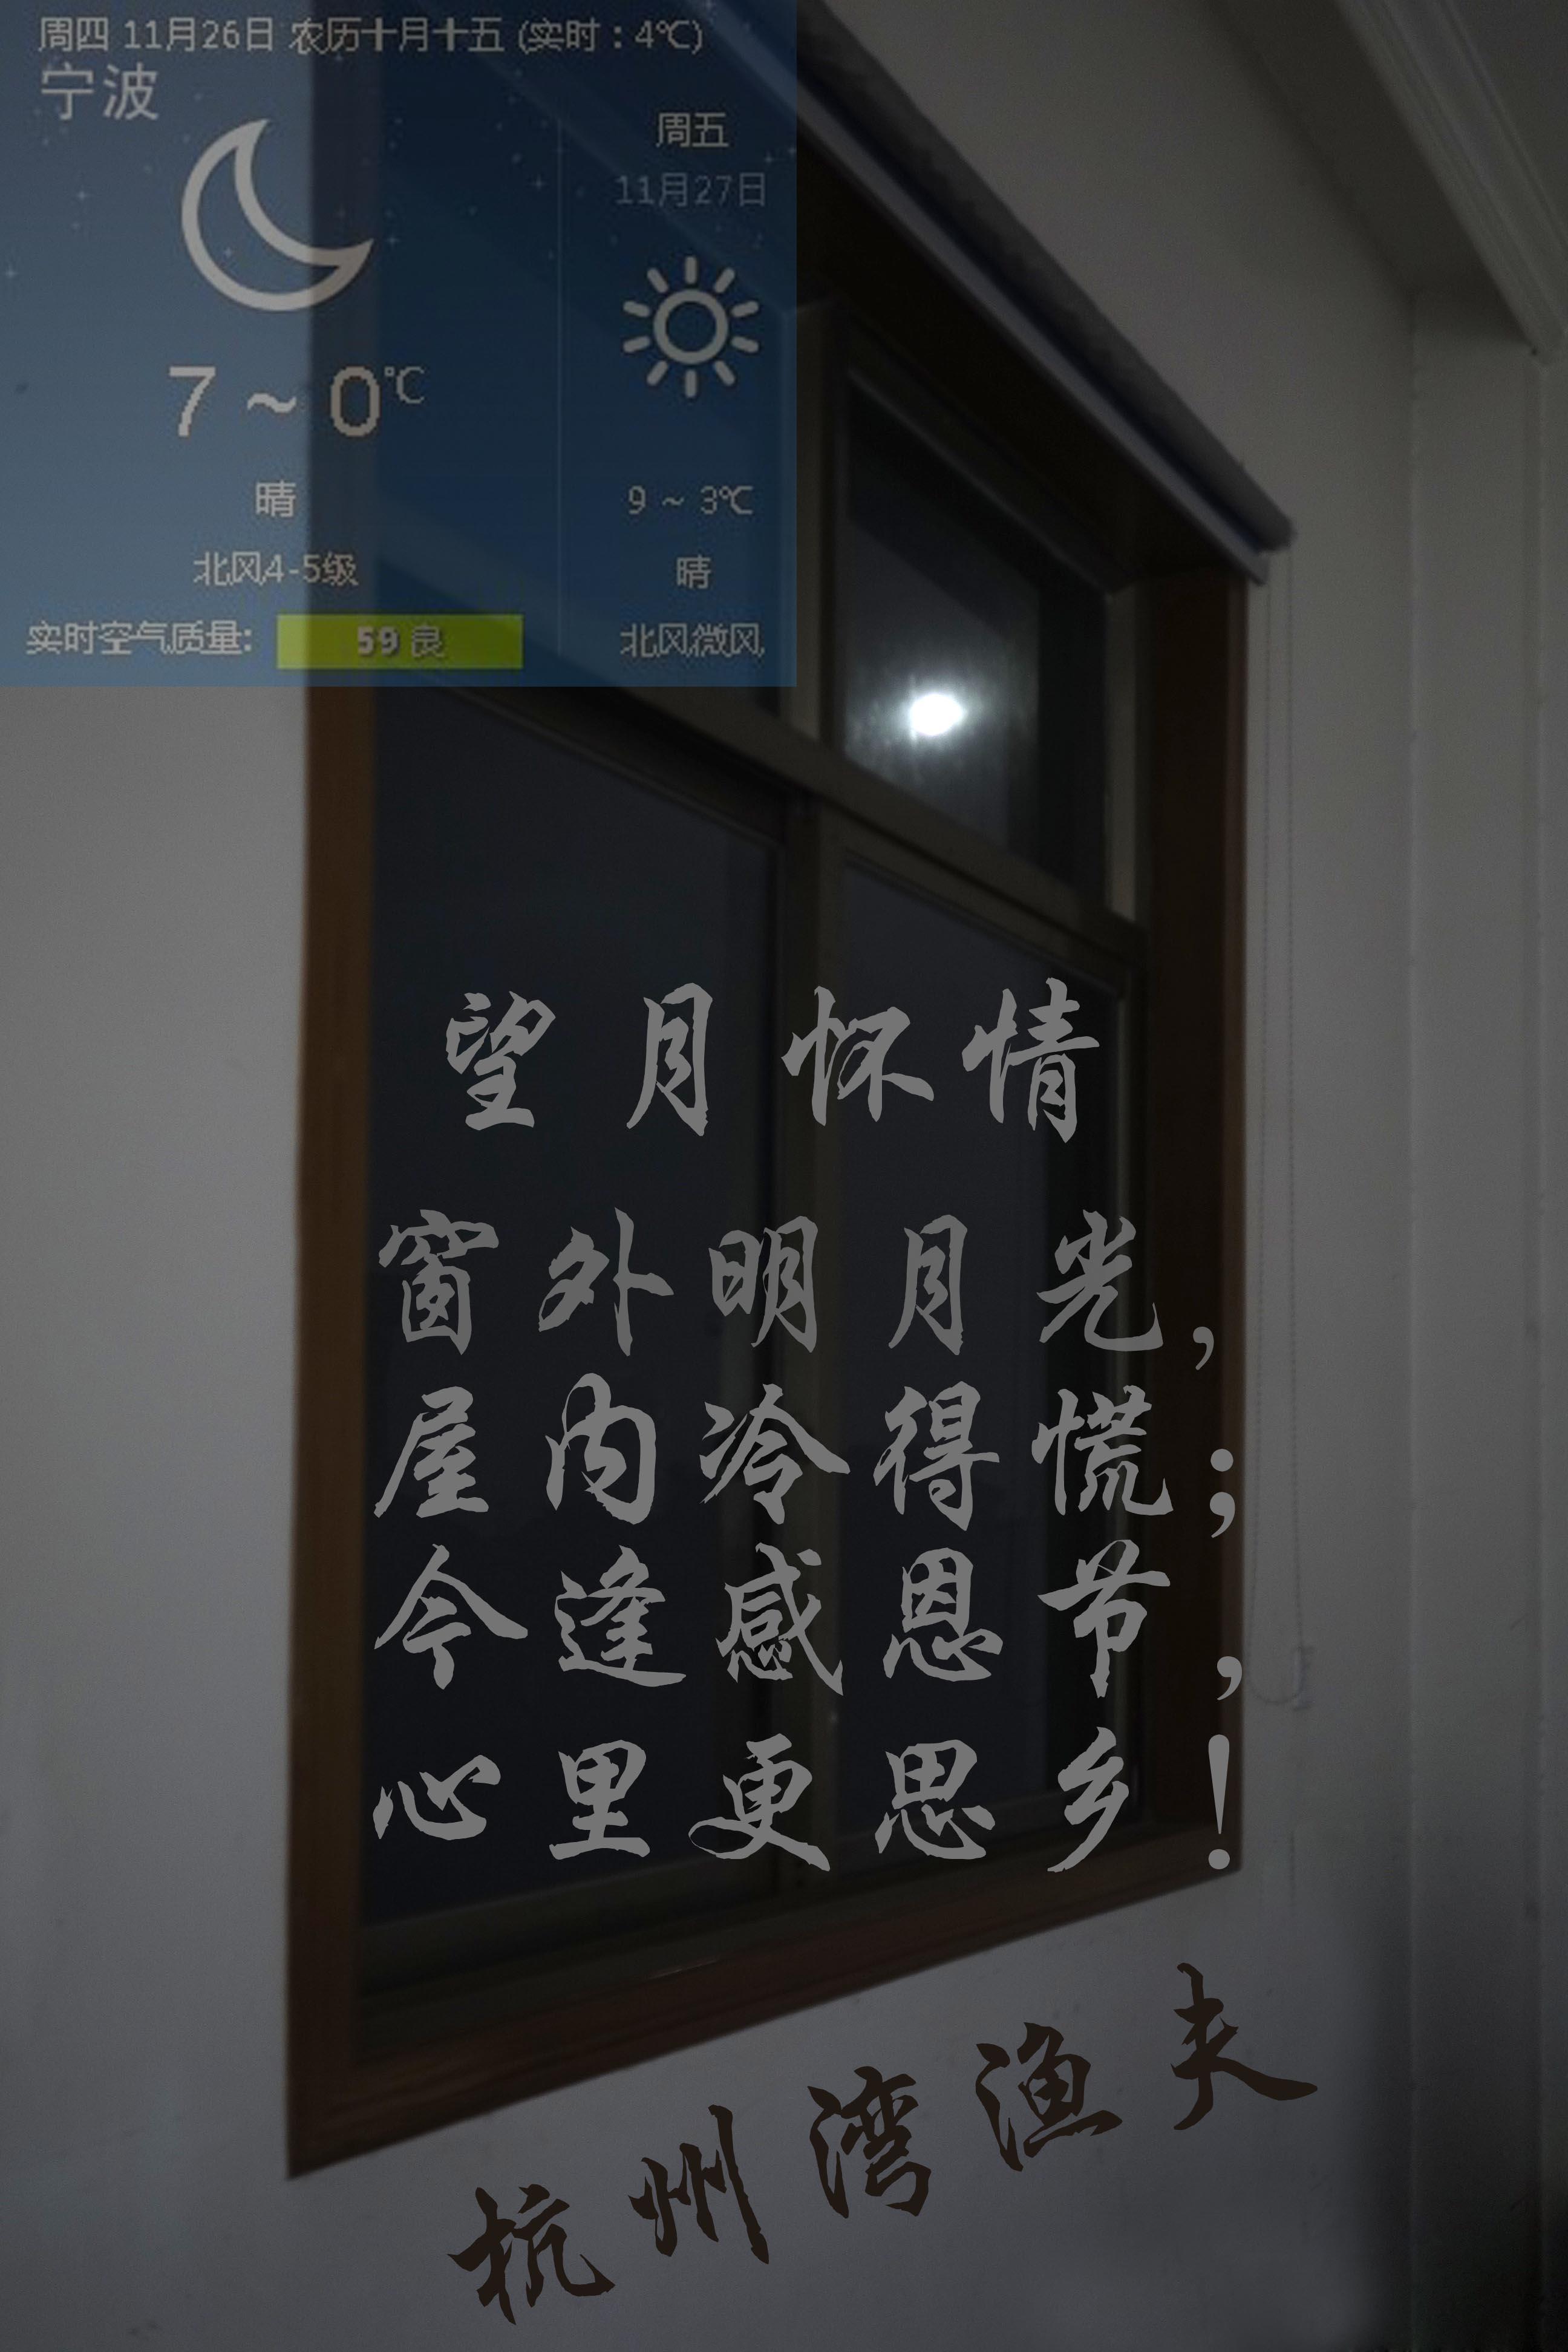 周四 11月26日 农历十月十五 (实时：4℃)
宁波
7 ~ 0℃
晴
北风4-5级
实时空气质量: 59 良
周五
11月27日
9 ~ 3℃
晴
北风微风
望月怀情
窗外明月光，
屋内冷得慌；
今逢感恩节，
心里更思乡！
杭州湾渔夫